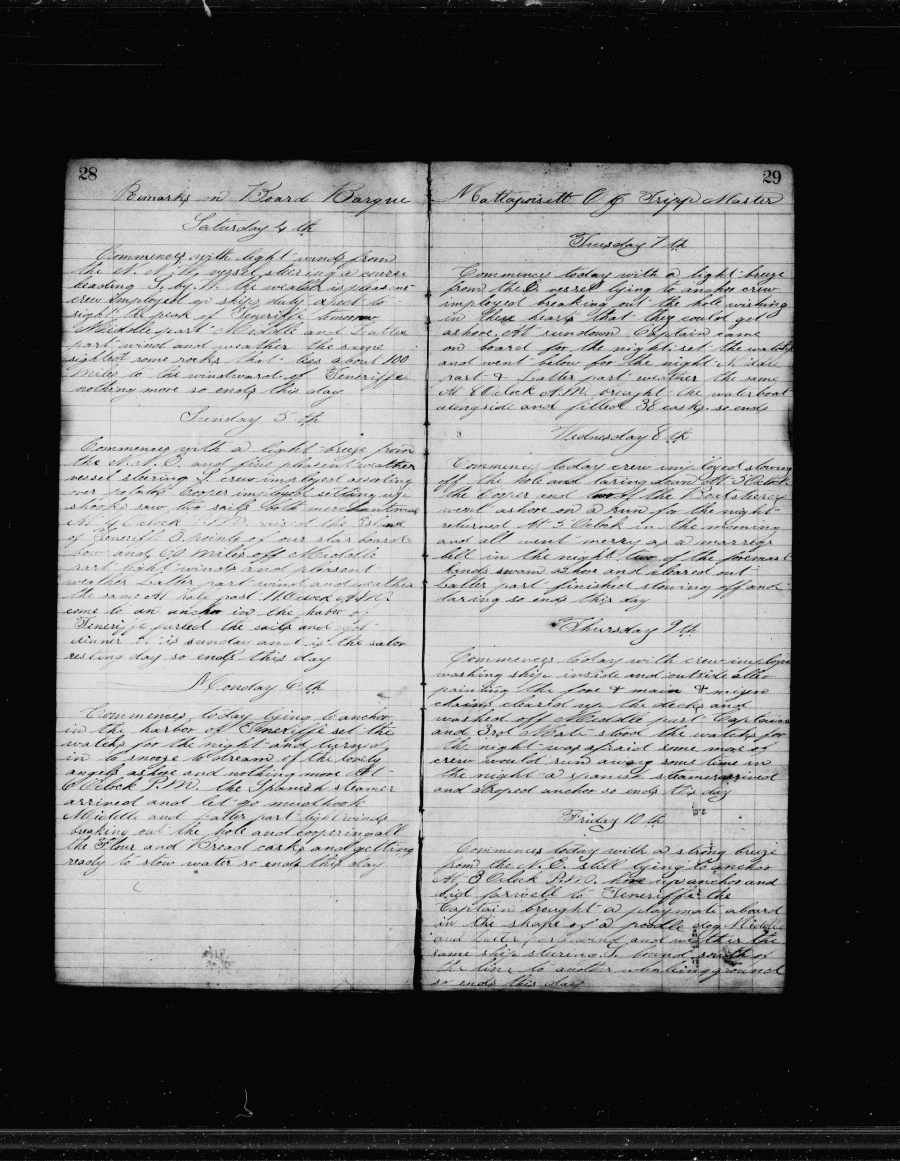 28
Remarks on Board Barque
Saturday 4 th
Commences with light winds from
the N. N. W. vessel steering a course
heading S. by W. the weather is pleasant
crew employed on ships duty expect to
sight the peak of Teneriffe tomorrow
Middle part Middle and Latter
part wind and weather the same
sighted some rocks that lies about 100
miles to the windward of Teneriffe
nothing more so ends this day
Sunday 5 th
Commences with a light breeze from
the N. N. E. and fine pleasent weather
vessel steering S. crew employed assorting
over potatos Cooper employed setting up
shooks saw two sails both merchantmen
At 4 Oclock P.M. raised the Island
of Teneriffe 3 points of our star board
bow and 60 miles off Middle
part light winds and pleasent
weather Latter part wind and weather
the same At half past 11 Oclock A.M.
come to an anchor in the habor of
Teneriffe furled the sails and got
dinner it is sunday and is the sailor
resting day so ends this day
Monday 6 th
Commences today lying to anchor
in the harbor of Teneriffe set the
watch for the night and turned
in to snooze to dream of the lovely
angels ashore and nothing more At
Oclock P.M. the Spanish steamer
arrived and let go mudhook
Middle and latter part light winds
breaking out the hole and coopering all
the Flour and Bread casks and getting
ready to stow water so ends this day
29
Mattapoisett O G Tripp Master
Tuesday 7 th
Commences today with a light breeze
from the E. vessel lying to anchor crew
employed breaking out the hole wishing
in there hearts that they could get
ashore. At sundown Captain came
on board for the night set the watch
and went below for the night Middle
part & Latter part weather the same
At 6 Oclock A.M. brought the waterboat
alongside and filled 38 casks so ends
Wednesday 8 th
Commences today crew employed stowing
off the hole and taring down At 5 Oclock
the Coper and two of the Boatsherers
went ashore on a run for the night
returned At 5 Oclock in the morning
and all went merry as a marrige
bell in the night two of the foremast
hands swam ashore and cleared out
Latter part finished stowing off and
taring so ends this day
Thursday 9 th
Commences today with crew employed
washing ship inside and outside also
painting the fore & main & mizen
chains cleared up the decks and
washed off Middle part Captain
and 3rd Mate stood the watch for
the night was afraid some more of
crew would run away some time in
the night a spanish steamer arrived
and droped anchor so ends this day
Friday 10 th
Commences today with a strong breeze
from the N. E. still lying to anchor
At 3 Oclock P.M. hove up anchor and
bid farwell to Teneriffe the
Captain brought a playmate aboard
in the shape of a poodle dog Middle
and Latter part wind and weather the
same ship stering S. bound south of
the line to another whaling ground
so ends this day